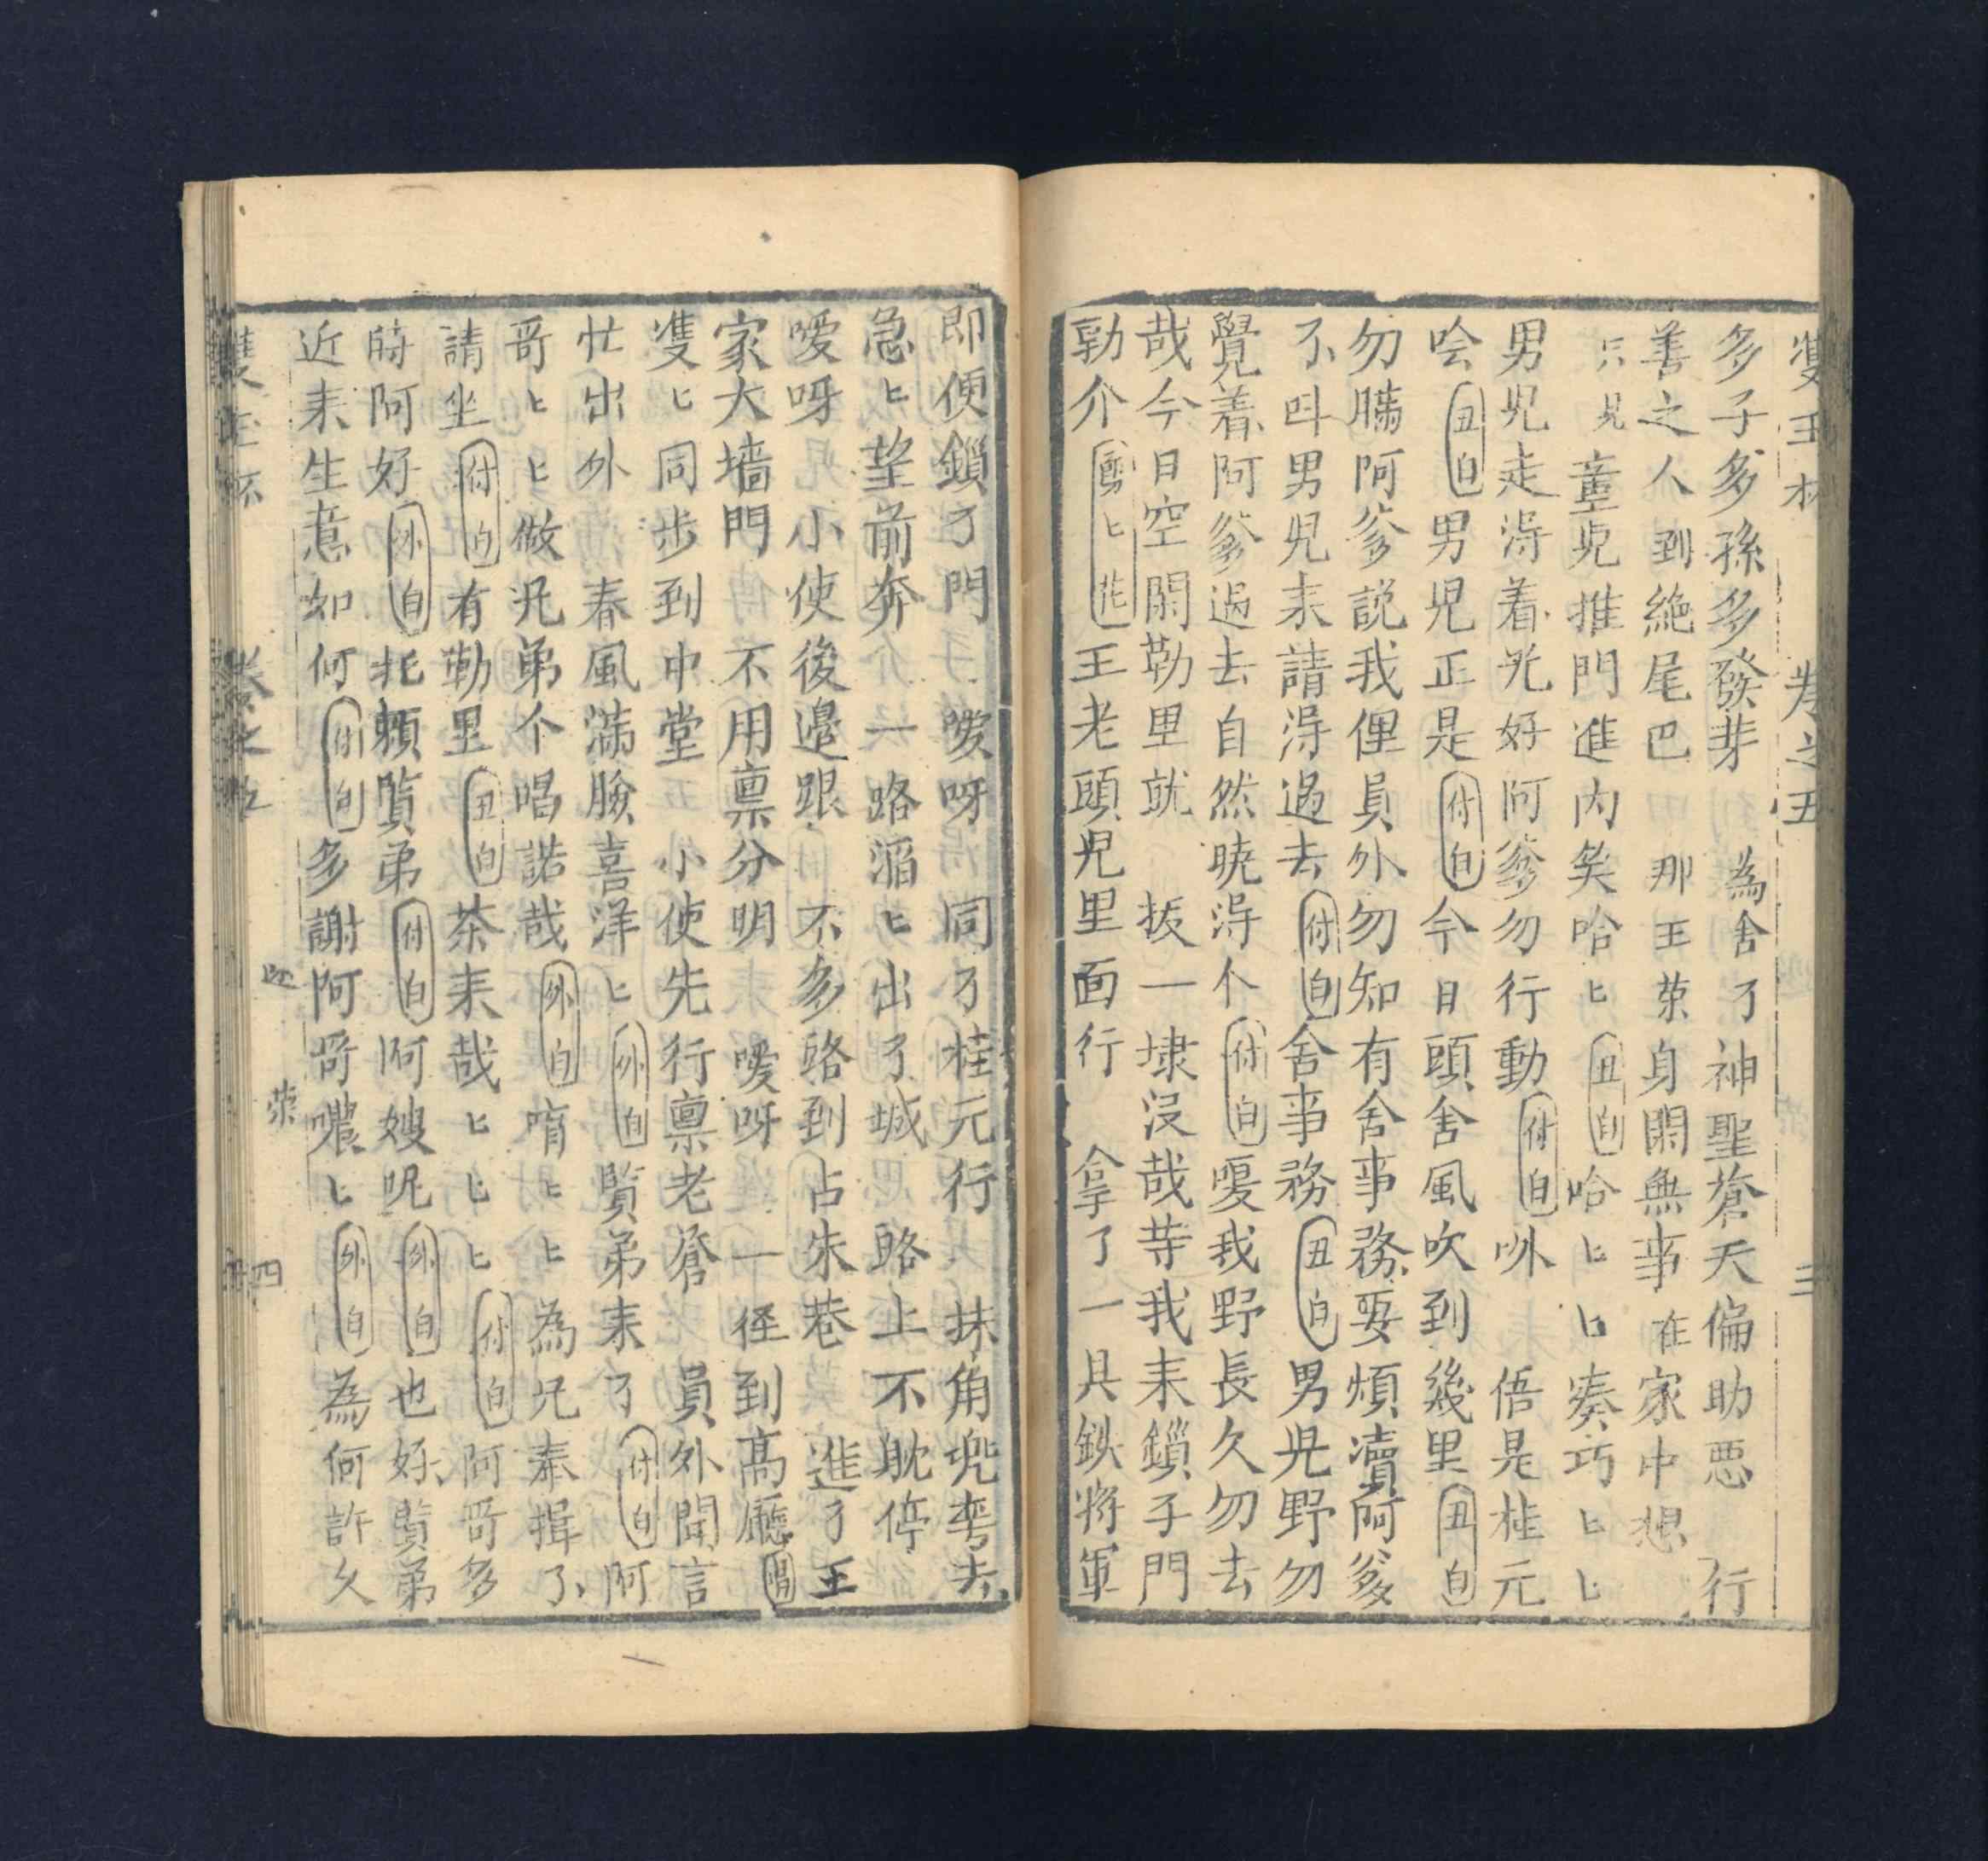 多子多孫多發芽　為舍了神聖蒼天偏助惡　行
善之人到絕尾巴　那王荣身閑無事在家中想
只見童児推門進内笑哈匕 丑白 哈匕匕湊巧匕匕
男児走淂着児好阿爹勿行動 付白 咻　悟是桂元
哙 丑白 男児正是 付白 今日頭舍風吹到幾里 丑白
勿瞞阿爹説我俚員外勿知有舍事務要煩瀆阿爹
不叫男児来請淂過去 付白 舍事務 丑白 男児野勿
覺着阿爹過去自然暁淂个 付白 我野長久勿去
哉今日空閑勒里就　拔一埭没哉等我来鎖子門
勤介 王老頭児里面行　拿了一具鉄將軍
即便鎖了門　嗳呀　同了桂元行　抹角兜弯去
急匕望前奔　一路滔匕出了城　路上不躭停
嗳呀小使後邉跟　不多路到占朱巷　進了王
家大墻門　不用禀分明　嗳呀　一径到高廳 唱
隻匕同步到中堂　小使先行禀老爺　員外聞言
忙出外　春風滿臉喜洋匕 外白 賢弟来了 付白 阿
哥匕匕做兄弟个唱諾哉 外白 唷匕匕為兄奉揖了
請坐 付白 有勒里 丑白 茶来哉匕匕匕 付白 阿哥多
時阿好 外白 托賴賢弟 付白 阿嫂呢 外白 也好賢弟
近来生意如何 付白 多謝阿哥噥匕 外白 為何許久
卷之五
四